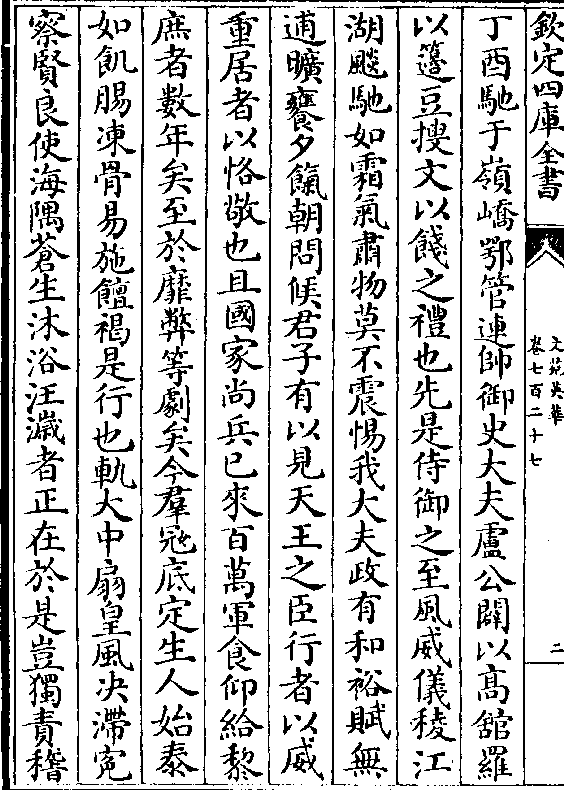 欽定四庫全書
文苑英華
卷七百二十七
二
丁酉馳于嶺嶠鄂管連帥御史大夫盧公闢以高舘羅
以籩豆搜文以餞之禮也先是侍御之至風威儀稜江
湖飈馳如霜氣肅物莫不震惕我大夫政有和裕賦無
逋曠饔夕餼朝問候君子有以見天王之臣行者以威
重居者以恪敬也且國家尚兵已來百萬軍食仰給黎
庶者數年矣至於靡弊等劇矣今羣冦底定生人始泰
如飢腸凍骨易施饘褐是行也軌大中扇皇風决滯寃
察賢良使海隅蒼生沐浴汪濊者正在於是豈獨責稽